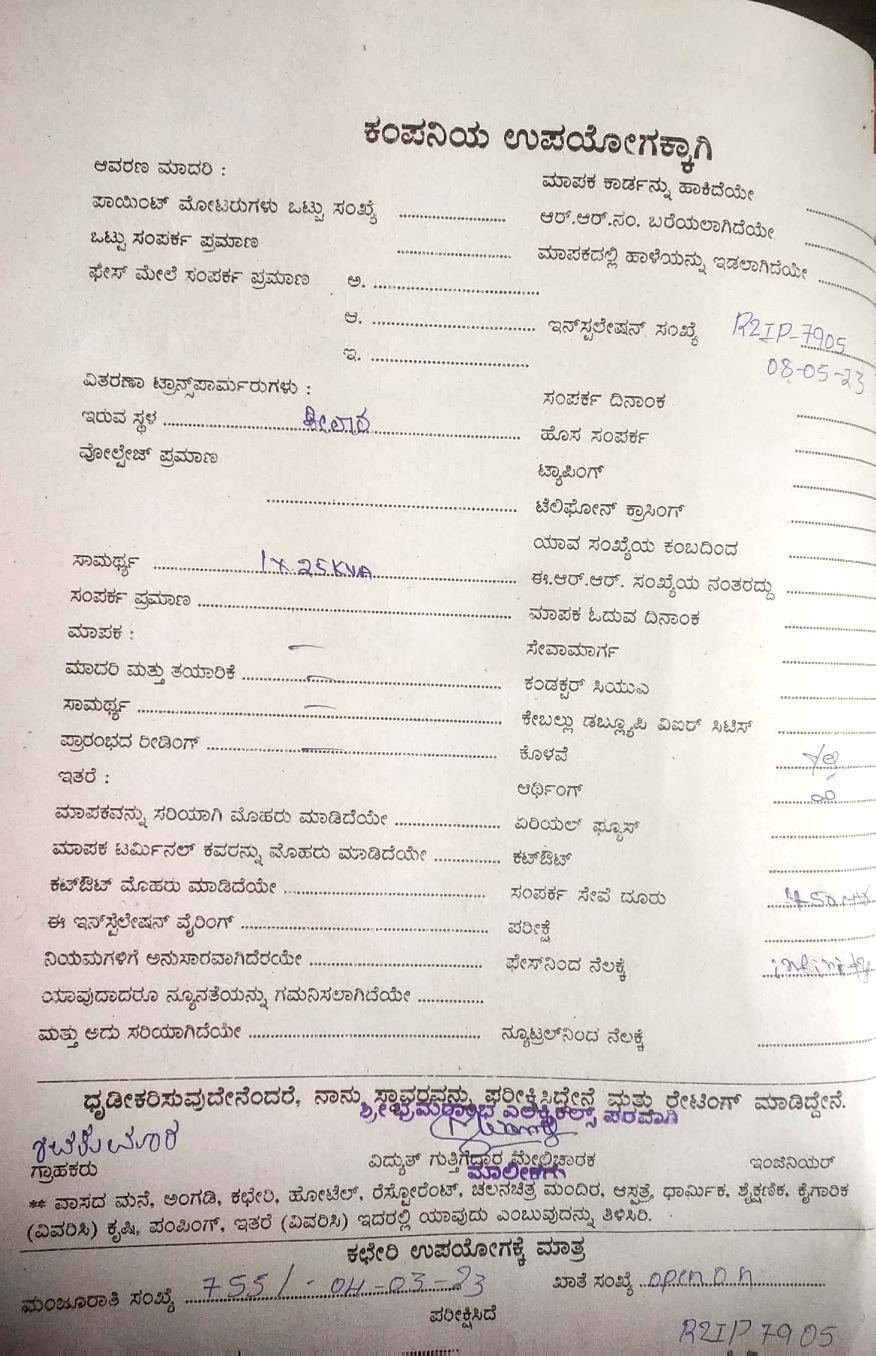 ಕಂಪನಿಯ ಉಪಯೋಗಕ್ಕಾಗಿ
ಆವರಣ ಮಾದರಿ :
ಮಾಪಕ ಕಾರ್ಡನ್ನು ಹಾಕಿದೆಯೇ
ಪಾಯಿಂಟ್ ಮೋಟರುಗಳು ಒಟ್ಟು ಸಂಖ್ಯೆ
ಆರ್.ಆರ್.ನಂ. ಬರೆಯಲಾಗಿದೆಯೇ
ಒಟ್ಟು ಸಂಪರ್ಕ ಪ್ರಮಾಣ
ಮಾಪಕದಲ್ಲಿ ಹಾಳೆಯನ್ನು ಇಡಲಾಗಿದೆಯೇ
ಫೇಸ್ ಮೇಲೆ ಸಂಪರ್ಕ ಪ್ರಮಾಣ ಅ.
ಆ. ಇನ್‌ಸ್ಟಲೇಷನ್ ಸಂಖ್ಯೆ R2IP-7905
ಇ. 08-05-23
ವಿತರಣಾ ಟ್ರಾನ್ಸ್‌ಪಾರ್ಮರುಗಳು :
ಸಂಪರ್ಕ ದಿನಾಂಕ
ಇರುವ ಸ್ಥಳ ಕೀಲಾರ
ಹೊಸ ಸಂಪರ್ಕ
ವೋಲ್ಟೇಜ್ ಪ್ರಮಾಣ
ಟ್ಯಾಪಿಂಗ್
ಟೆಲಿಫೋನ್ ಕ್ರಾಸಿಂಗ್
ಯಾವ ಸಂಖ್ಯೆಯ ಕಂಬದಿಂದ
ಸಾಮರ್ಥ್ಯ 1 x 25 KVA
ಈ.ಆರ್.ಆರ್. ಸಂಖ್ಯೆಯ ನಂತರದ್ದು
ಸಂಪರ್ಕ ಪ್ರಮಾಣ
ಮಾಪಕ ಓದುವ ದಿನಾಂಕ
ಮಾಪಕ :
ಸೇವಾಮಾರ್ಗ
ಮಾದರಿ ಮತ್ತು ತಯಾರಿಕೆ
ಕಂಡಕ್ಟರ್ ಸಿಯುಎ
ಸಾಮರ್ಥ್ಯ
ಕೇಬಲ್ಲು ಡಬ್ಲ್ಯೂಪಿ ವಿಐರ್ ಸಿಟಿಸ್
ಪ್ರಾರಂಭದ ರೀಡಿಂಗ್
ಕೊಳವೆ
ಇತರೆ :
ಆರ್ಥಿಂಗ್
ಮಾಪಕವನ್ನು ಸರಿಯಾಗಿ ಮೊಹರು ಮಾಡಿದೆಯೇ
ಏರಿಯಲ್ ಫ್ಯೂಸ್
ಮಾಪಕ ಟರ್ಮಿನಲ್ ಕವರನ್ನು ಮೊಹರು ಮಾಡಿದೆಯೇ
ಕಟ್‌ಔಟ್
ಕಟ್‌ಔಟ್ ಮೊಹರು ಮಾಡಿದೆಯೇ
ಸಂಪರ್ಕ ಸೇವೆ ದೂರು
ಈ ಇನ್‌ಸ್ಟೆಲೇಷನ್ ವೈರಿಂಗ್
ಪರೀಕ್ಷೆ
ನಿಯಮಗಳಿಗೆ ಅನುಸಾರವಾಗಿದೆರಯೇ
ಫೇಸ್‌ನಿಂದ ನೆಲಕ್ಕೆ infinity
ಯಾವುದಾದರೂ ನ್ಯೂನತೆಯನ್ನು ಗಮನಿಸಲಾಗಿದೆಯೇ
ಮತ್ತು ಅದು ಸರಿಯಾಗಿದೆಯೇ
ನ್ಯೂಟ್ರಲ್‌ನಿಂದ ನೆಲಕ್ಕೆ
ಧೃಡೀಕರಿಸುವುದೇನೆಂದರೆ, ನಾನು ಸ್ಥಾವರವನ್ನು ಪರೀಕ್ಷಿಸಿದ್ದೇನೆ ಮತ್ತು ರೇಟಿಂಗ್ ಮಾಡಿದ್ದೇನೆ.
ಎಲೆಕ್ಟ್ರಿಕಲ್ಸ್ ಪರವಾಗಿ
ಗ್ರಾಹಕರು
ವಿದ್ಯುತ್ ಗುತ್ತಿಗೆದಾರ ಮೇಲ್ವಿಚಾರಕ
ಇಂಜಿನಿಯರ್
ಮಾಲೀಕರು
** ವಾಸದ ಮನೆ, ಅಂಗಡಿ, ಕಛೇರಿ, ಹೋಟೆಲ್, ರೆಸ್ಟೋರೆಂಟ್, ಚಲನಚಿತ್ರ ಮಂದಿರ, ಆಸ್ಪತ್ರೆ, ಧಾರ್ಮಿಕ, ಶೈಕ್ಷಣಿಕ, ಕೈಗಾರಿಕ
(ವಿವರಿಸಿ) ಕೃಷಿ, ಪಂಪಿಂಗ್, ಇತರೆ (ವಿವರಿಸಿ) ಇದರಲ್ಲಿ ಯಾವುದು ಎಂಬುವುದನ್ನು ತಿಳಿಸಿರಿ.
ಕಛೇರಿ ಉಪಯೋಗಕ್ಕೆ ಮಾತ್ರ
ಮಂಜೂರಾತಿ ಸಂಖ್ಯೆ 755/ - 04-03-23
ಖಾತೆ ಸಂಖ್ಯೆ
ಪರೀಕ್ಷಿಸಿದೆ
R2IP 7905